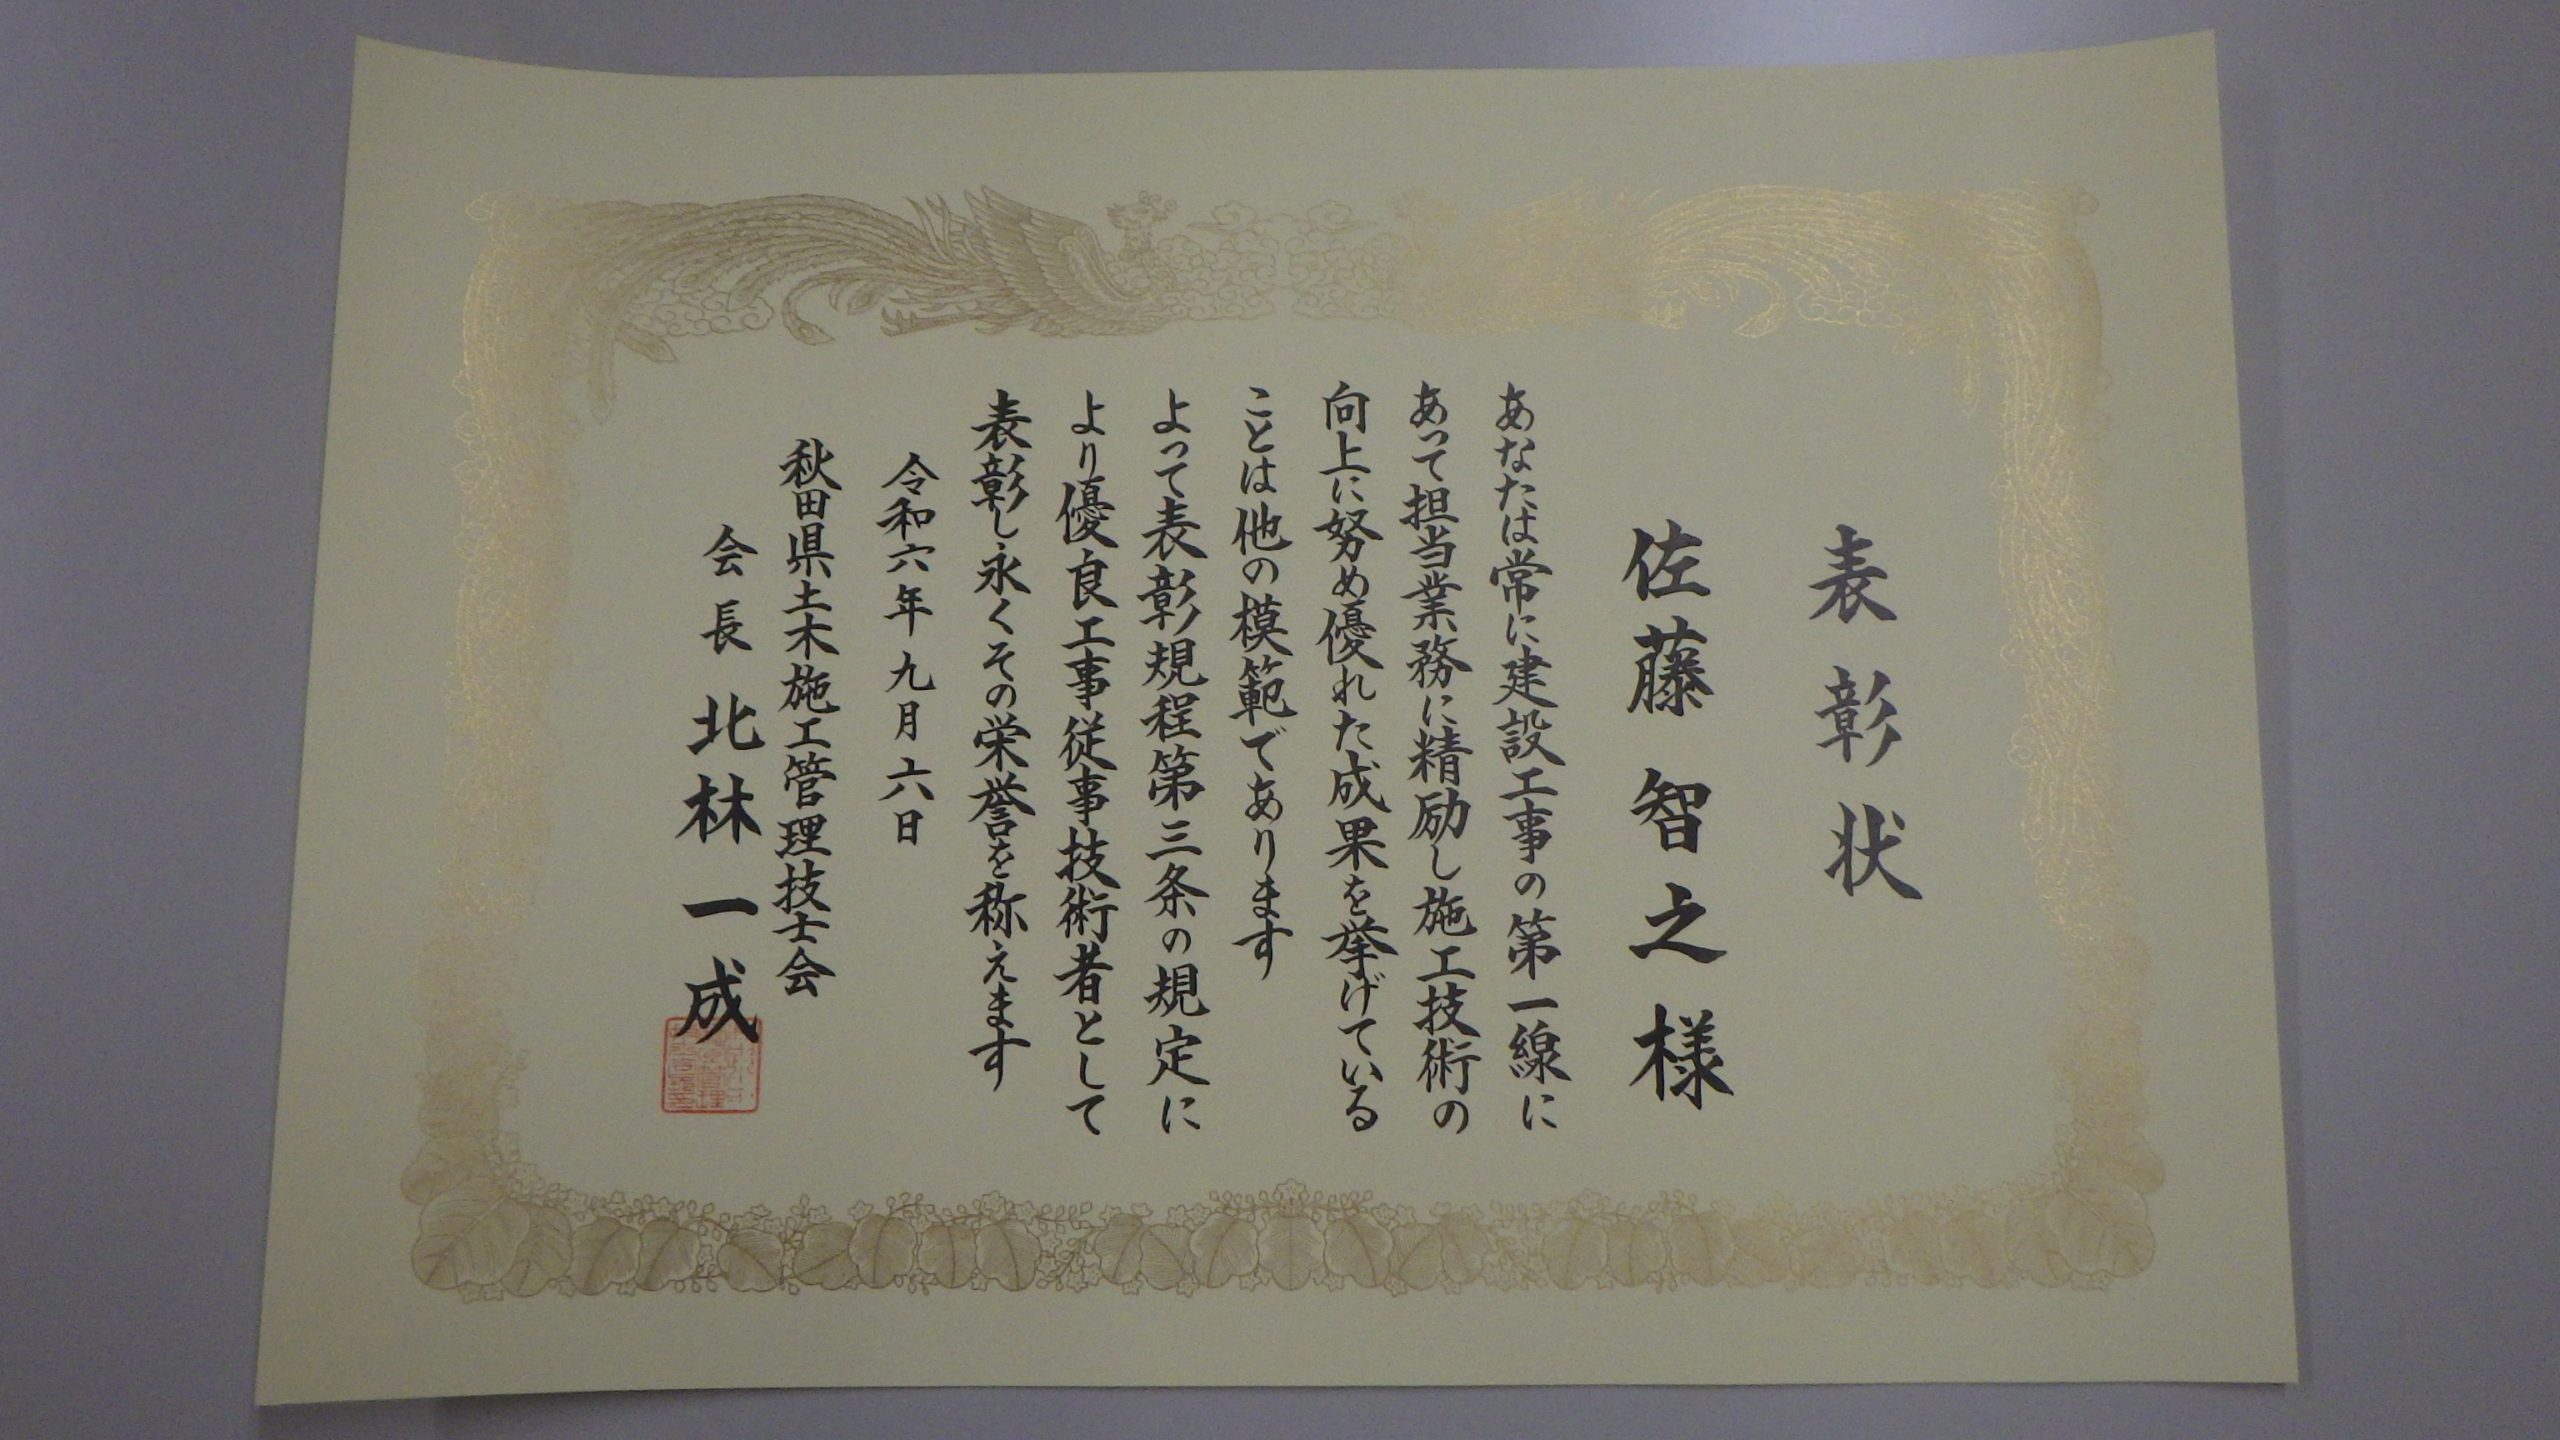 表彰状
佐藤智之様
あなたは常に建設工事の第一線に
あって担当業務に精励し施工技術の
向上に努め優れた成果を挙げている
ことは他の模範であります
よって表彰規程第三条の規定に
より優良工事従事技術者として
表彰し永くその栄誉を称えます
令和六年九月六日
秋田県土木施工管理技士会
会長 北林一成